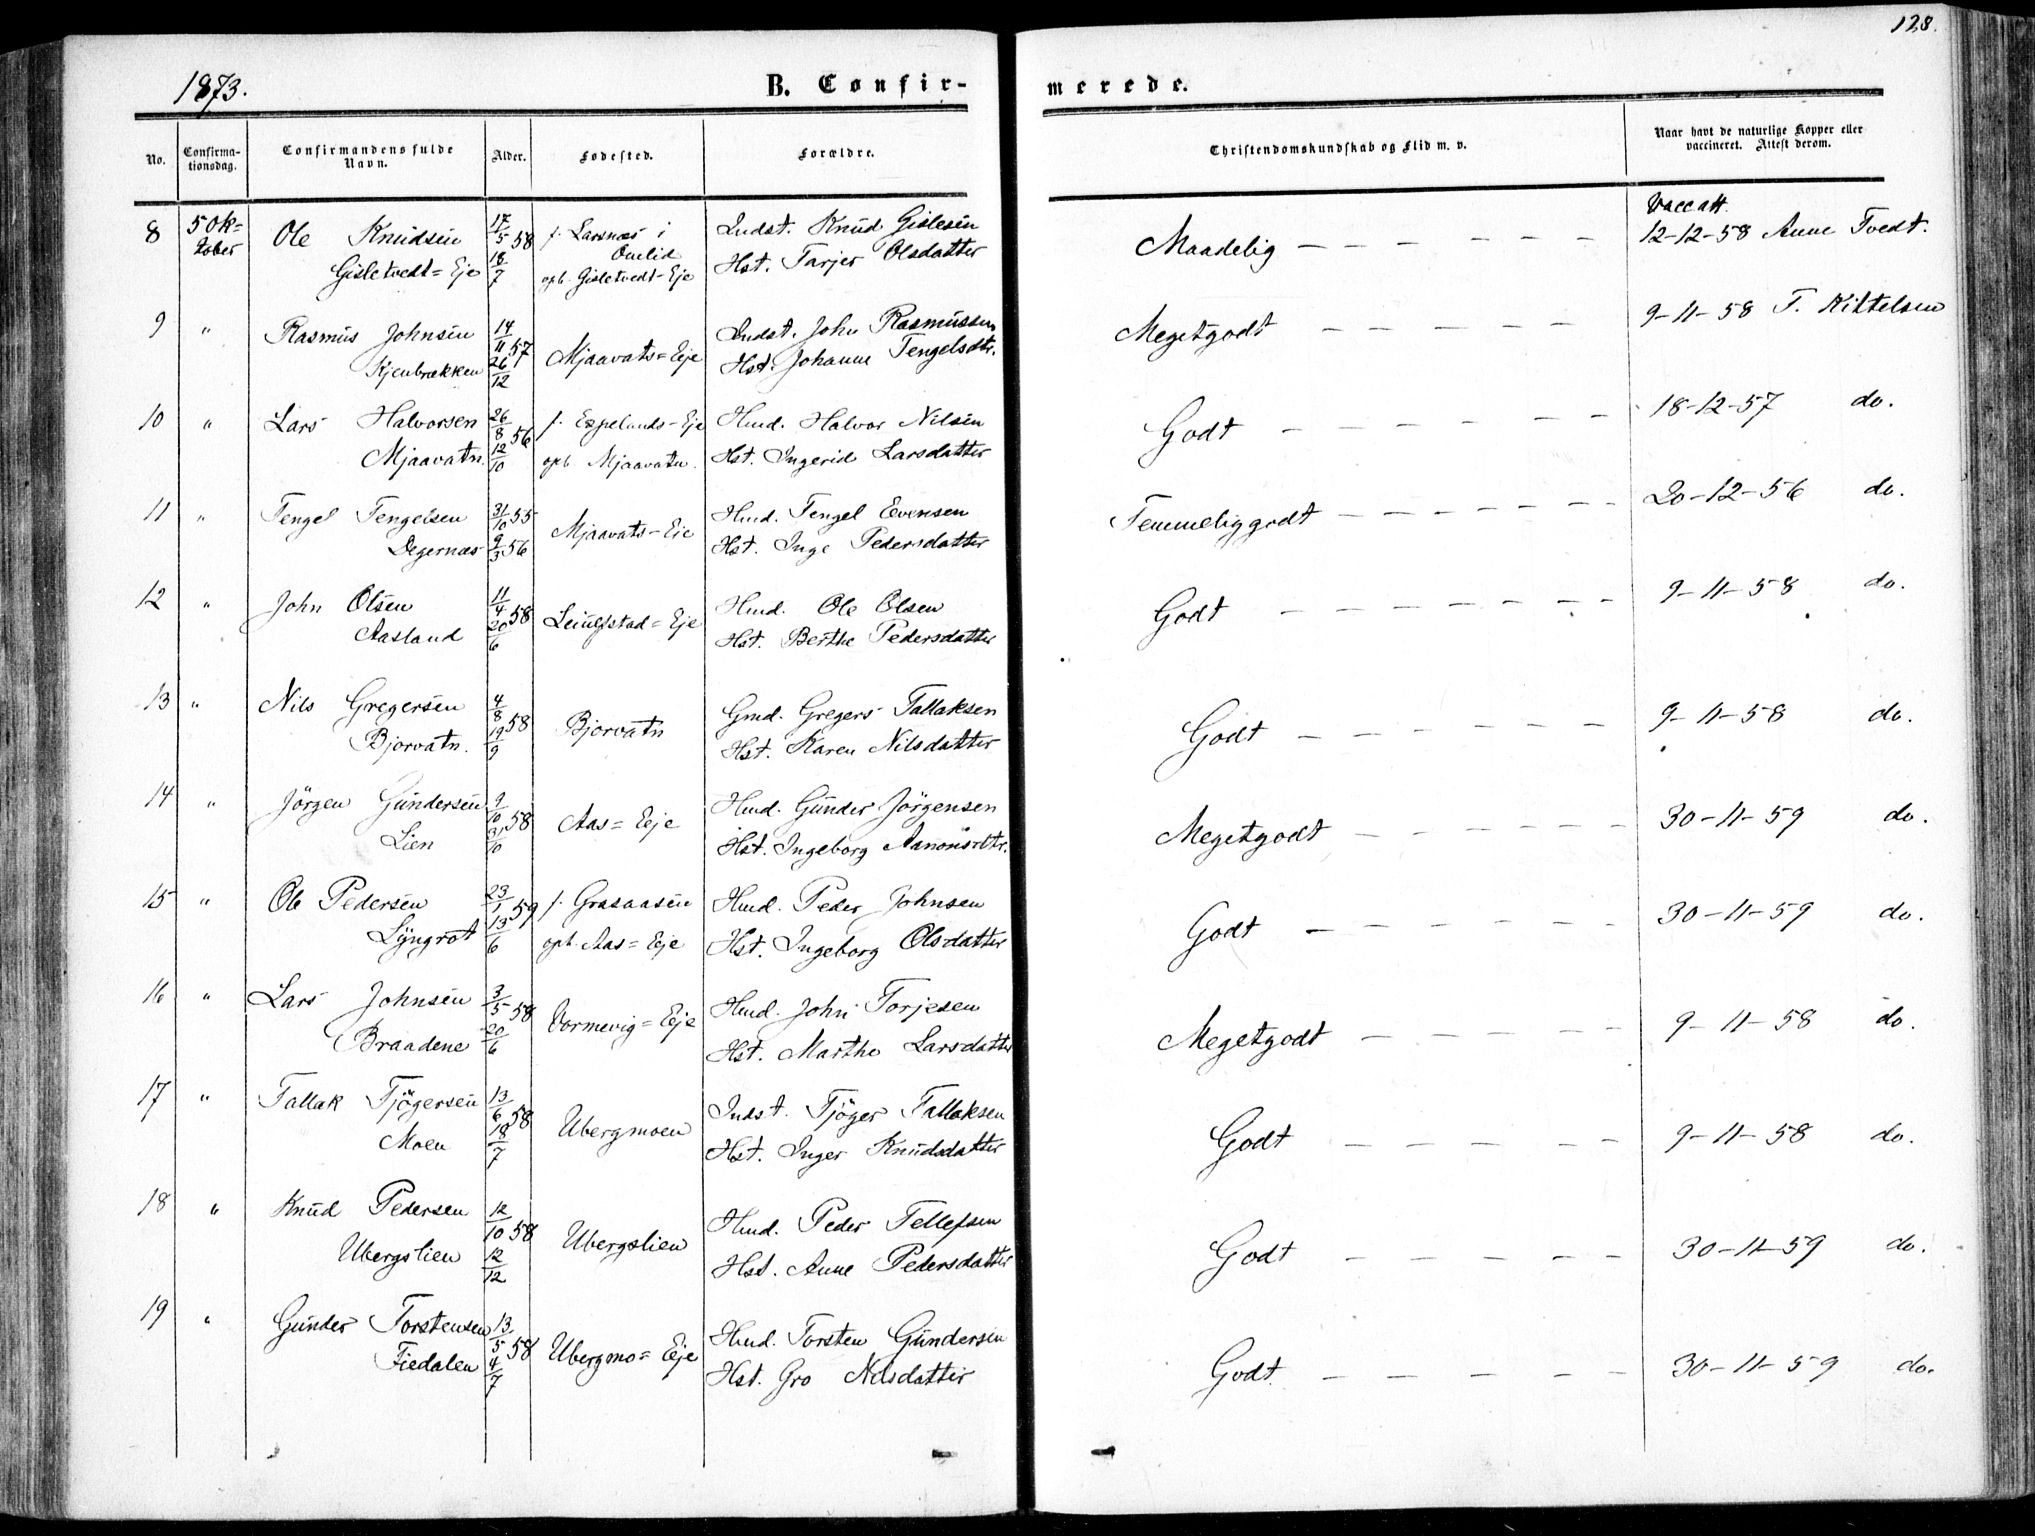 128.
1873.
B. Confirmerede.
No.
Confirmationsdag.
Confirmandens fulde Navn.
Alder.
Fødested.
Forældre.
Christendomskundskab og Flid m. v.
Naar havt de naturlige Kopper eller vaccineret. Attest derom.
8 5 Ok= Ole Knudsen 17/5 58 f. Larsnæs i Indst. Knud Gislesen Maadelig Vacc att. 12-12-58 Anne Tvedt.
tober Gisletvedt=Eje 18/7 Omlid opb. Gisletvedt-Eje Hst. Tarjer Olsdatter
9 " Rasmus Johnsen 14/11 57 Mjaavats=Eje Indst. John Rasmussen Megetgodt 9-11-58 T. Kittelsen
Kjenbrækken 26/12 Hst. Johanne Tengelsdtr.
10 " Lars Halvorsen 26/8 56 f. Espelands-Eje Hmd. Halvor Nilsen Godt 18-12-57 do.
Mjaavatn. 12/10 opb. Mjaavatn. Hst. Ingerid Larsdatter
11 " Tengel Tengelsen 31/10 55 Mjaavats-Eie Hmd. Tengel Evensen Temmeliggodt 20-12-56 do.
Degernæs 9/3 56 Hst. Inge Pedersdatter
12 " John Olsen 11/4 58 Leiulfstad=Eje Hmd. Ole Olsen Godt 9-11-58 do.
Aasland 20/6 Hst. Berthe Pedersdatter
13 " Nils Gregersen 4/8 58 Bjorvatn Gmd. Gregers Tallaksen Godt 9-11-58 do.
Bjorvatn. 19/9 Hst. Karen Nilsdatter
14 " Jörgen Gundersen 9/10 58 Aas=Eje Hmd. Gunder Jörgensen Megetgodt 30-11-59 do.
Lien 31/10 Hst. Ingeborg Aanonsdtr.
15 " Ole Pedersen 23/1 59 f. Grasaasen Hmd. Peder Johnsen Godt 30-11-59 do.
Lyngrot 13/6 opb. Aas=Eje Hst. Ingeborg Olsdatter
16 " Lars Johnsen 3/5 58 Vormevig=Eje Hmd. John Torjesen Megetgodt 9-11-58 do.
Braadene 20/6 Hst. Marthe Larsdatter
17 " Tallak Tjögersen 13/6 58 Ubergmoen Indst. Tjöger Tallaksen Godt 9-11-58 do.
Moen 18/7 Hst. Inger Knudsdatter
18 " Knud Pedersen 12/10 58 Ubergslien Hmd. Peder Tellefsen Godt 30-11-59 do.
Ubergslien 12/12 Hst. Anne Pedersdatter
19 " Gunder Torstensen 13/5 58 Ubergmo=Eje Hmd. Torsten Gundersen Godt. 30-11-59 do.
Fiedalen 4/7 Hst. Gro Nilsdatter